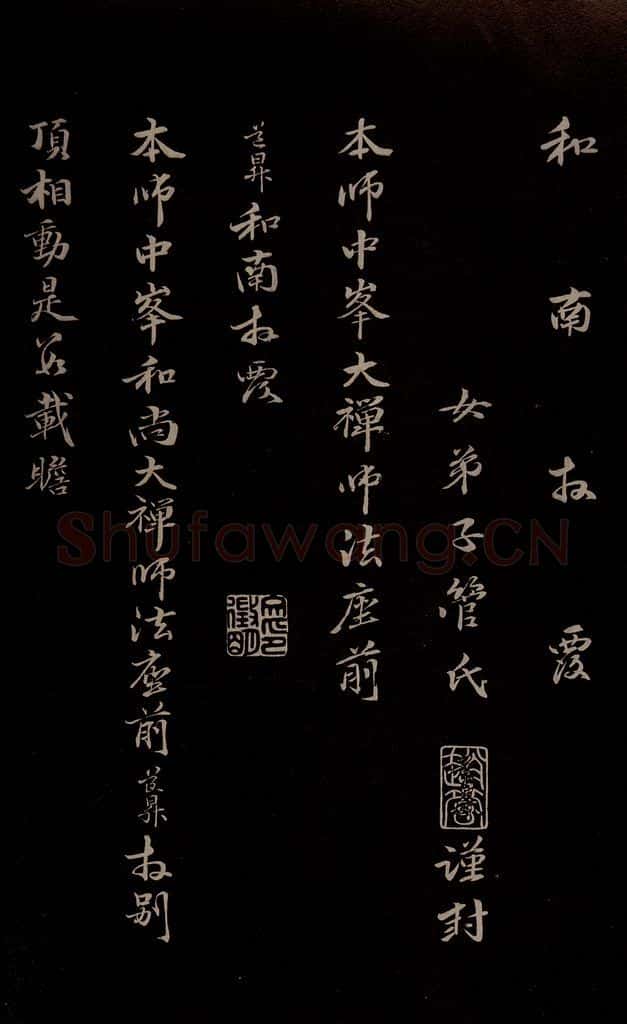 和南拜覆
女弟子管氏謹封
本師中峯大禪師法座前
道昇和南拜覆
本師中峯和尚大禪師法座前道昇拜別
頂相動是數載瞻
Shufawang.CN